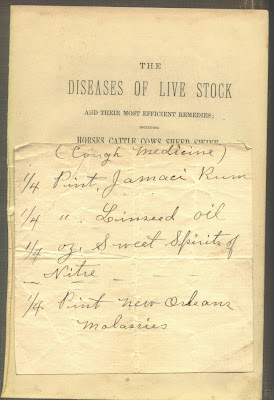 THE
DISEASES OF LIVE STOCK
AND THEIR MOST EFFICIENT REMEDIES;
INCLUDING
HORSES CATTLE COWS SHEEP SWINE
(Cough Medicine)
1/4 Pint Jamaci Rum
1/4 " Linseed oil
1/4 oz, Sweet Spirits of
Nitre
1/4 Pint new Orleans
molassies